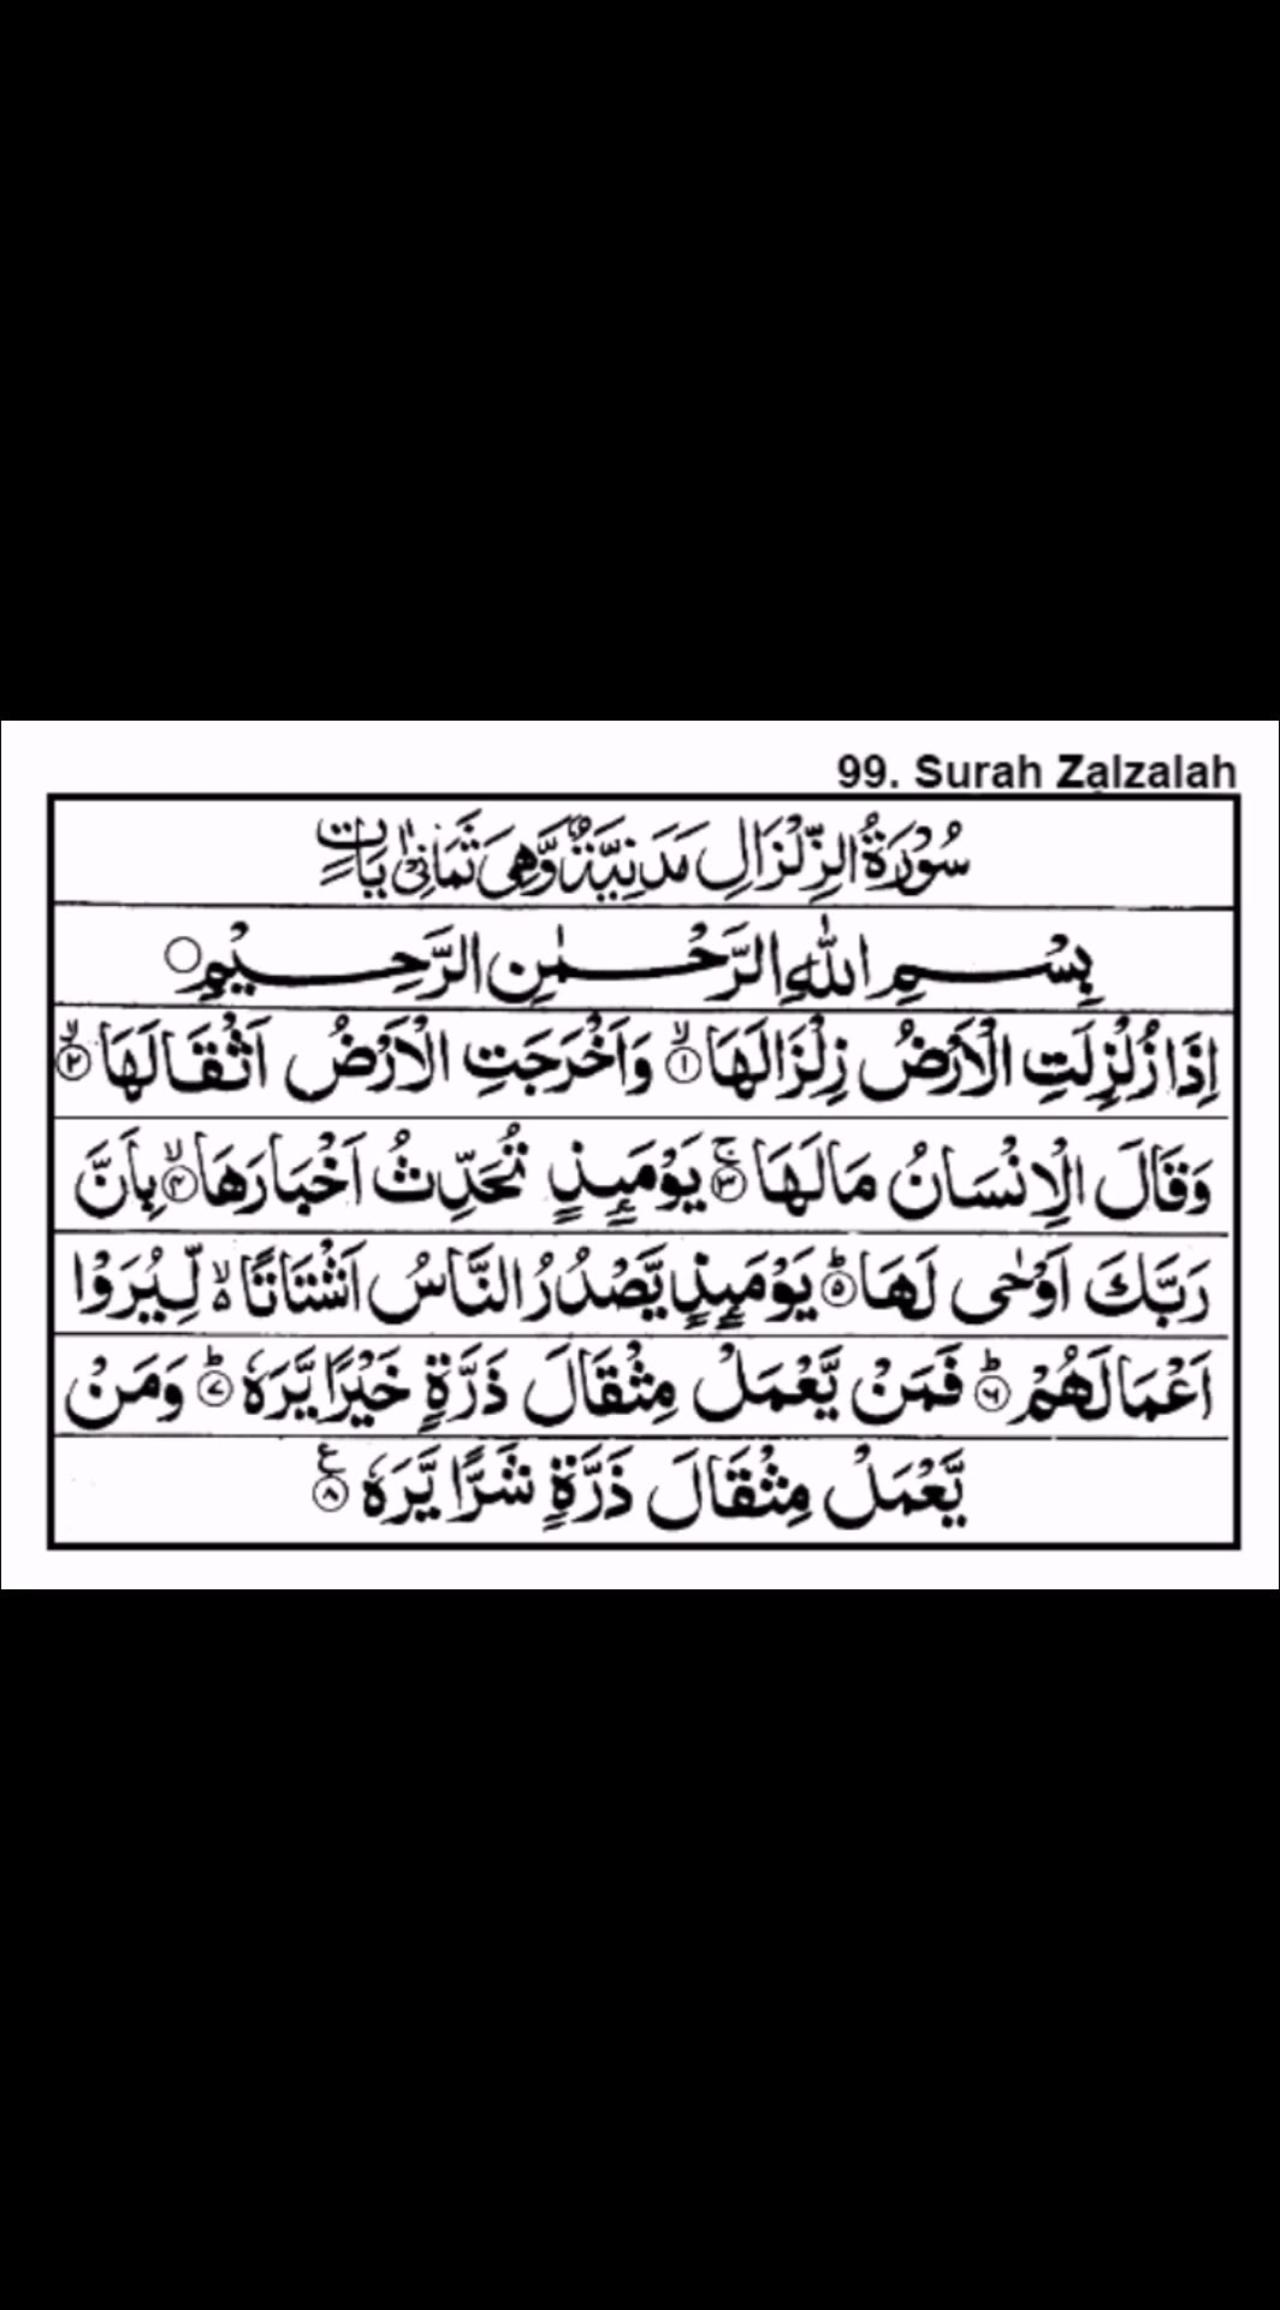 99. Surah Zalzalah
سُوْرَةُ الزِّلْزَالِ مَدَنِيَّةٌ وَّهِيَ ثَمَانِيْ اٰيَاتٍ
بِسْمِ اللّٰهِ الرَّحْمٰنِ الرَّحِيْمِ ○
اِذَا زُلْزِلَتِ الْاَرْضُ زِلْزَالَهَا ۙ‏﴿۱﴾ وَاَخْرَجَتِ الْاَرْضُ اَثْقَالَهَا ۙ‏﴿۲﴾
وَقَالَ الْاِنْسَانُ مَا لَهَا ۚ‏﴿۳﴾ يَوْمَىِٕذٍ تُحَدِّثُ اَخْبَارَهَا ۙ‏﴿۴﴾ بِاَنَّ
رَبَّكَ اَوْحٰى لَهَا ؕ‏﴿۵﴾ يَوْمَىِٕذٍ يَّصْدُرُ النَّاسُ اَشْتَاتًا ۙ۬ لِّيُرَوْا
اَعْمَالَهُمْ ؕ‏﴿۶﴾ فَمَنْ يَّعْمَلْ مِثْقَالَ ذَرَّةٍ خَيْرًا يَّرَهٗ ؕ‏﴿۷﴾ وَمَنْ
يَّعْمَلْ مِثْقَالَ ذَرَّةٍ شَرًّا يَّرَهٗ ﴿۸﴾ ع